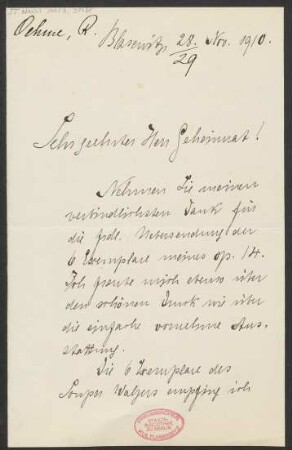 Oehme, R.
Blasewitz, 28./29 Nov. 1910.
Sehr geehrter Herr Geheimrat!
Nehmen Sie meinen
verbindlichsten Dank für
die frdl. Uebersendung der
6 Exemplare meines op. 14.
Ich freute mich ebenso über
den schönen Druck wie über
die einfache vornehme Aus-
stattung.
Die 6 Exemplare des
Souper Walzers empfing ich